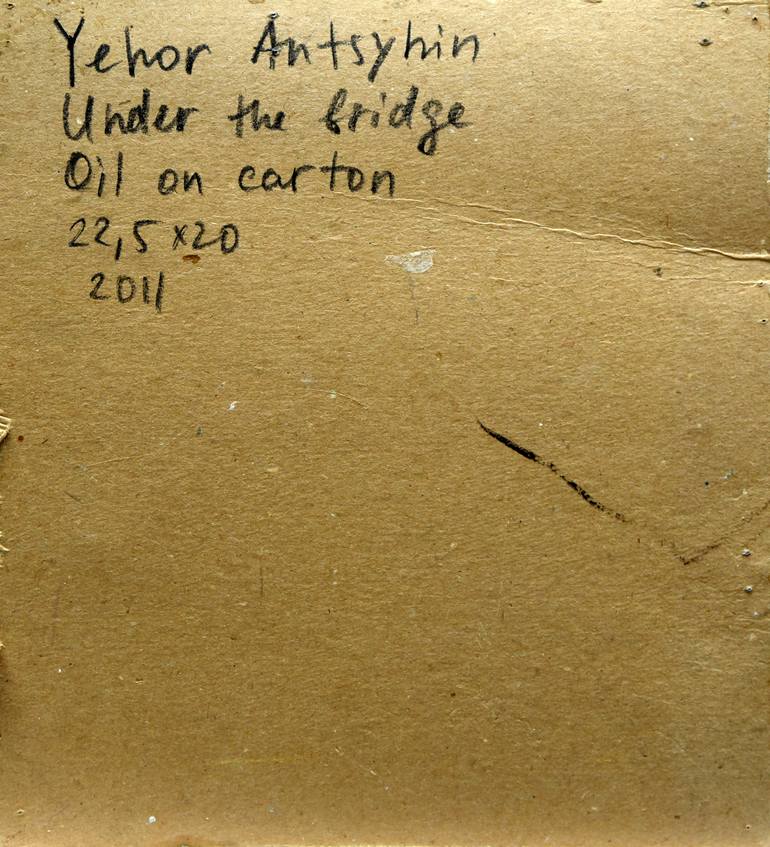 Yehor Antsyhin
Under the bridge
Oil on carton
22,5 x20
2011